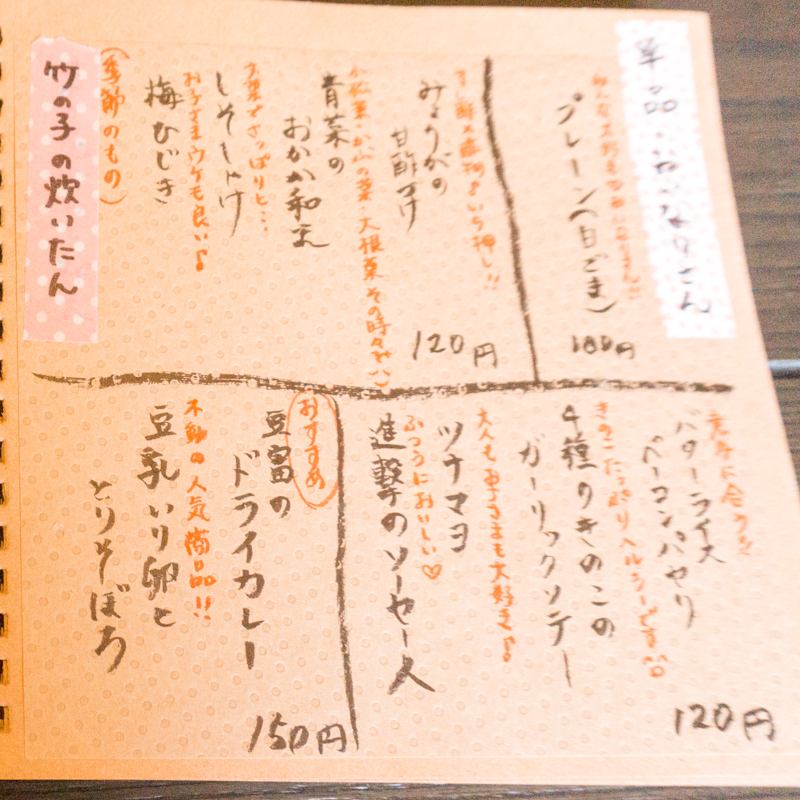 単品・おいなりさん
プレーン(白ごま)
100円
すし酢×藤
いち押し!!
みょうがの
甘酢づけ
小松菜・かぶの葉・大根葉 その時々で(^^)
青菜の
おかか和え
大葉でさっぱりと…
しそしゃけ
お子さまウケも良い♪
梅ひじき
120円
(季節のもの)
竹の子の炊いたん
意外に合うよ
バターライス
ベーコンパセリ
きのこたっぷりヘルシーです
4種のきのこの
ガーリックソテー
大人も子さまも大好き♪
ツナマヨ
ふつうにおいしい♡
進撃のソーセー人
120円
おすすめ
豆富の
ドライカレー
不動の人気商品!!
豆乳いり卵と
とりそぼろ
150円